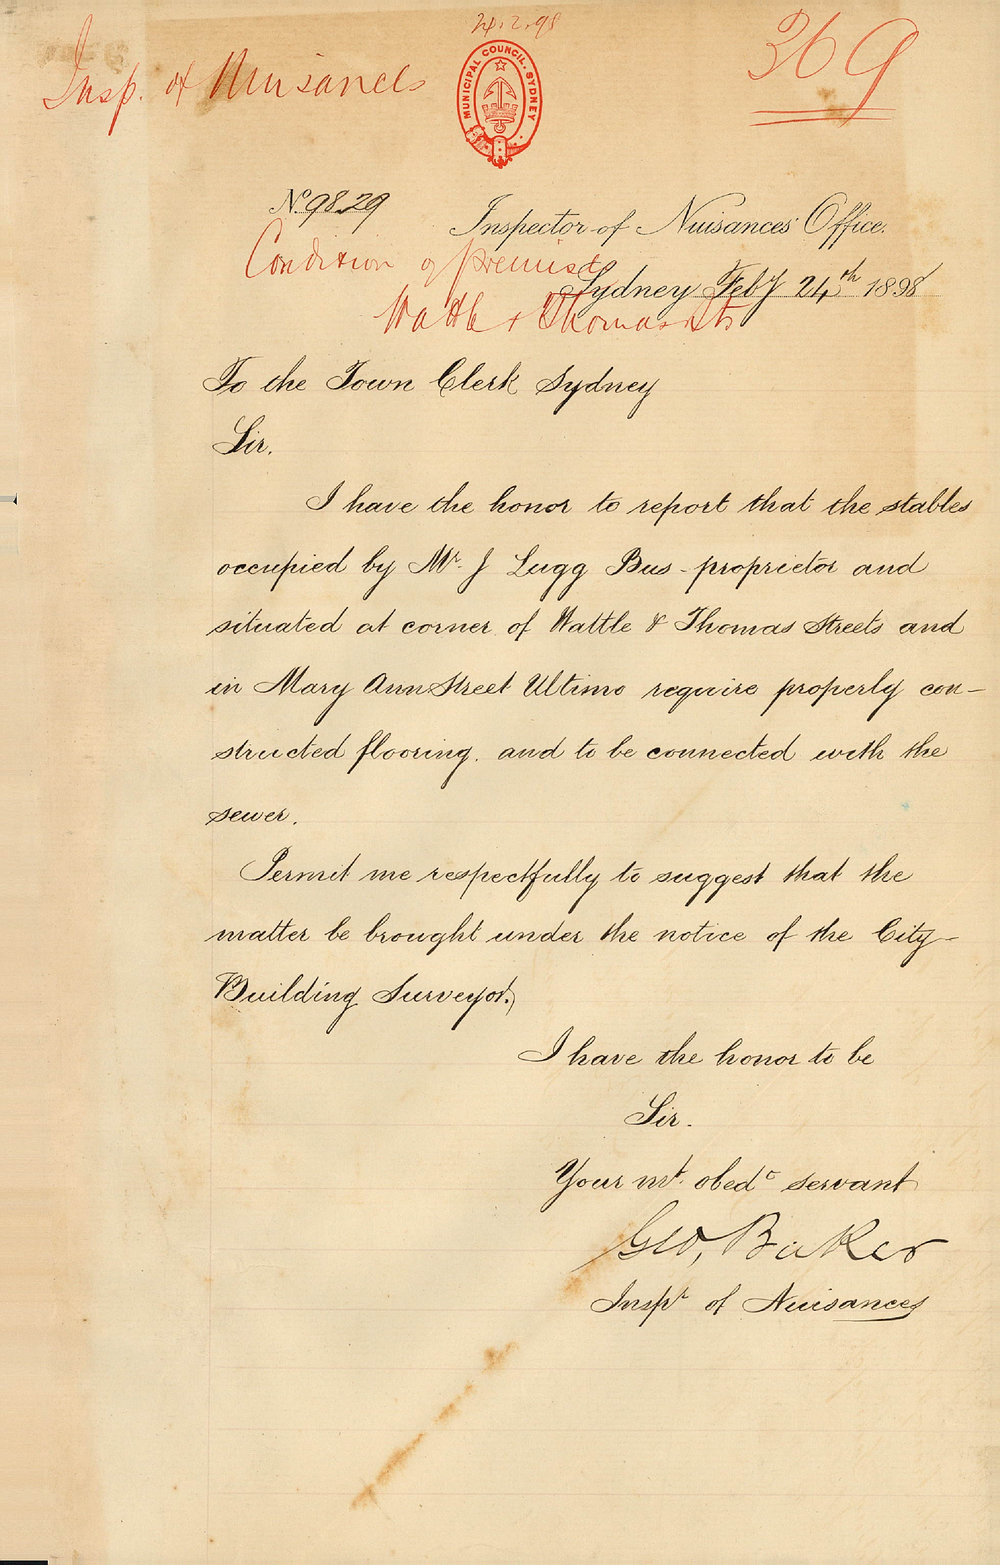 24.2.98
Insp. of Nuisances
369
MUNICIPAL COUNCIL. SYDNEY
No. 98.29
Inspector of Nuisances' Office.
Condition of premises
Sydney Feby 24th 1898
Wattle & Thomas Sts
To the Town Clerk Sydney
Sir.
I have the honor to report that the stables
occupied by Mr. J Lugg Bus-proprietor and
situated at corner of Wattle & Thomas Streets and
in Mary Ann Street Ultimo require properly con-
structed flooring. and to be connected with the
sewer.
Permit me respectfully to suggest that the
matter be brought under the notice of the City
Building Surveyor.
I have the honor to be
Sir.
Your mt. obedt servant
Geo, Baker
Inspr of Nuisances